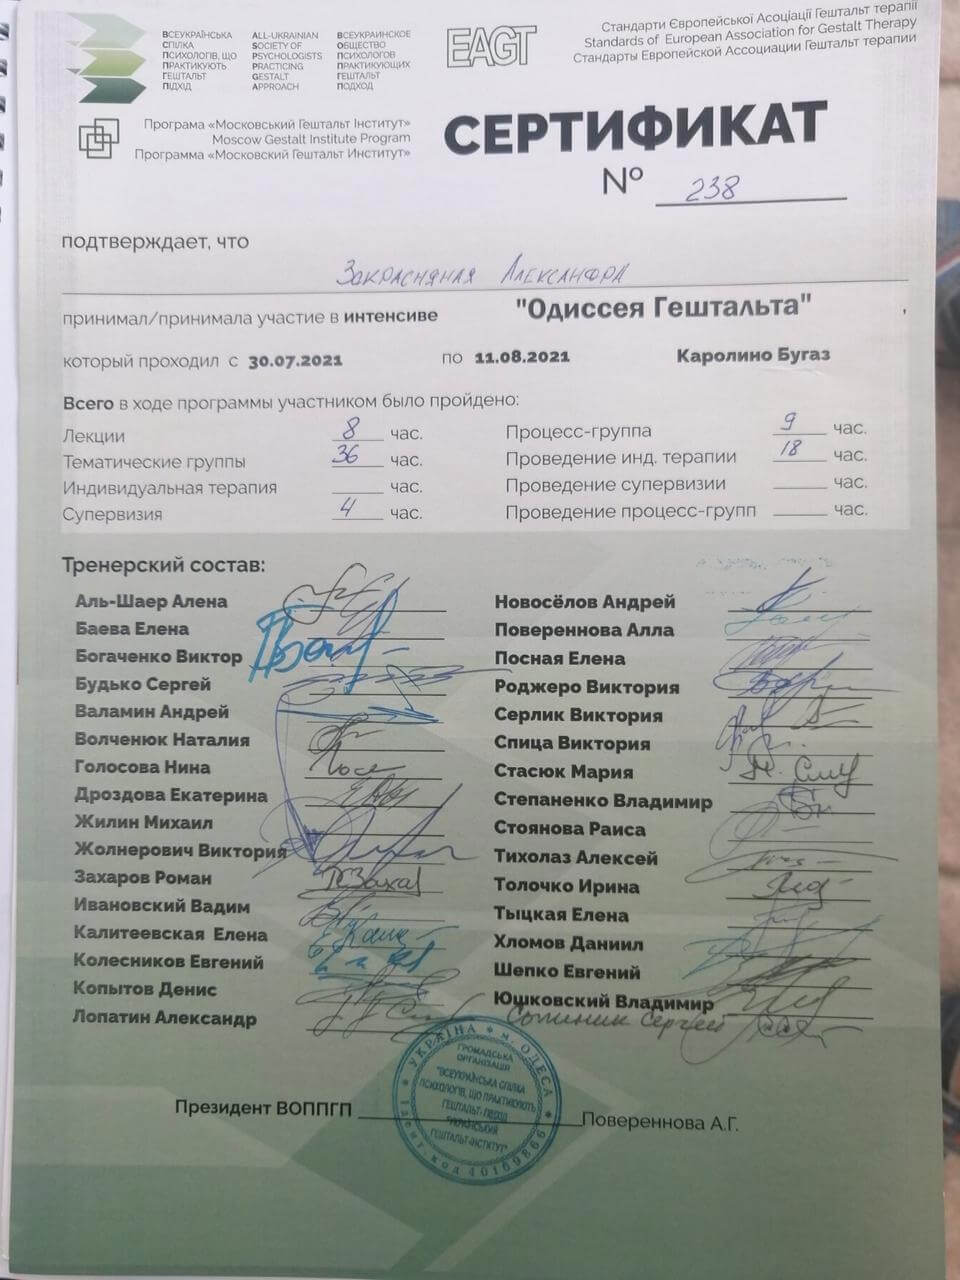 ВСЕУКРАЇНСЬКА
СПІЛКА
ПСИХОЛОГІВ, ЩО
ПРАКТИКУЮТЬ
ГЕШТАЛЬТ
ПІДХІД
ALL-UKRAINIAN
SOCIETY OF
PSYCHOLOGISTS
PRACTICING
GESTALT
APPROACH
ВСЕУКРАИНСКОЕ
ОБЩЕСТВО
ПСИХОЛОГОВ
ПРАКТИКУЮЩИХ
ГЕШТАЛЬТ
ПОДХОД
EAGT
Стандарти Європейської Асоціації Гештальт терапії
Standards of European Association for Gestalt Therapy
Стандарты Европейской Ассоциации Гештальт терапии
Програма «Московський Гештальт Інститут»
Moscow Gestalt Institute Program
Программа «Московский Гештальт Институт»
СЕРТИФИКАТ
№ 238
подтверждает, что
Закрасняная Александра
принимал/принимала участие в интенсиве "Одиссея Гештальта" ,
который проходил с 30.07.2021 по 11.08.2021 Каролино Бугаз
Всего в ходе программы участником было пройдено:
Лекции 8 час. Процесс-группа 9 час.
Тематические группы 36 час. Проведение инд. терапии 18 час.
Индивидуальная терапия час. Проведение супервизии час.
Супервизия 4 час. Проведение процесс-групп час.
Тренерский состав:
Аль-Шаер Алена
Баева Елена
Богаченко Виктор
Будько Сергей
Валамин Андрей
Волченюк Наталия
Голосова Нина
Дроздова Екатерина
Жилин Михаил
Жолнерович Виктория
Захаров Роман
Ивановский Вадим
Калитеевская Елена
Колесников Евгений
Копытов Денис
Лопатин Александр
Новосёлов Андрей
Повереннова Алла
Посная Елена
Роджеро Виктория
Серлик Виктория
Спица Виктория
Стасюк Мария
Степаненко Владимир
Стоянова Раиса
Тихолаз Алексей
Толочко Ирина
Тыцкая Елена
Хломов Даниил
Шепко Евгений
Юшковский Владимир
Сергей
Президент ВОППГП Повереннова А.Г.
УКРАЇНА * м. ОДЕСА *
ГРОМАДСЬКА
ОРГАНІЗАЦІЯ
"ВСЕУКРАЇНСЬКА СПІЛКА
ПСИХОЛОГІВ, ЩО ПРАКТИКУЮТЬ
ГЕШТАЛЬТ-ПІДХІД
"УКРАЇНСЬКИЙ
ГЕШТАЛЬТ-ІНСТИТУТ"
Ідент. код 40169866